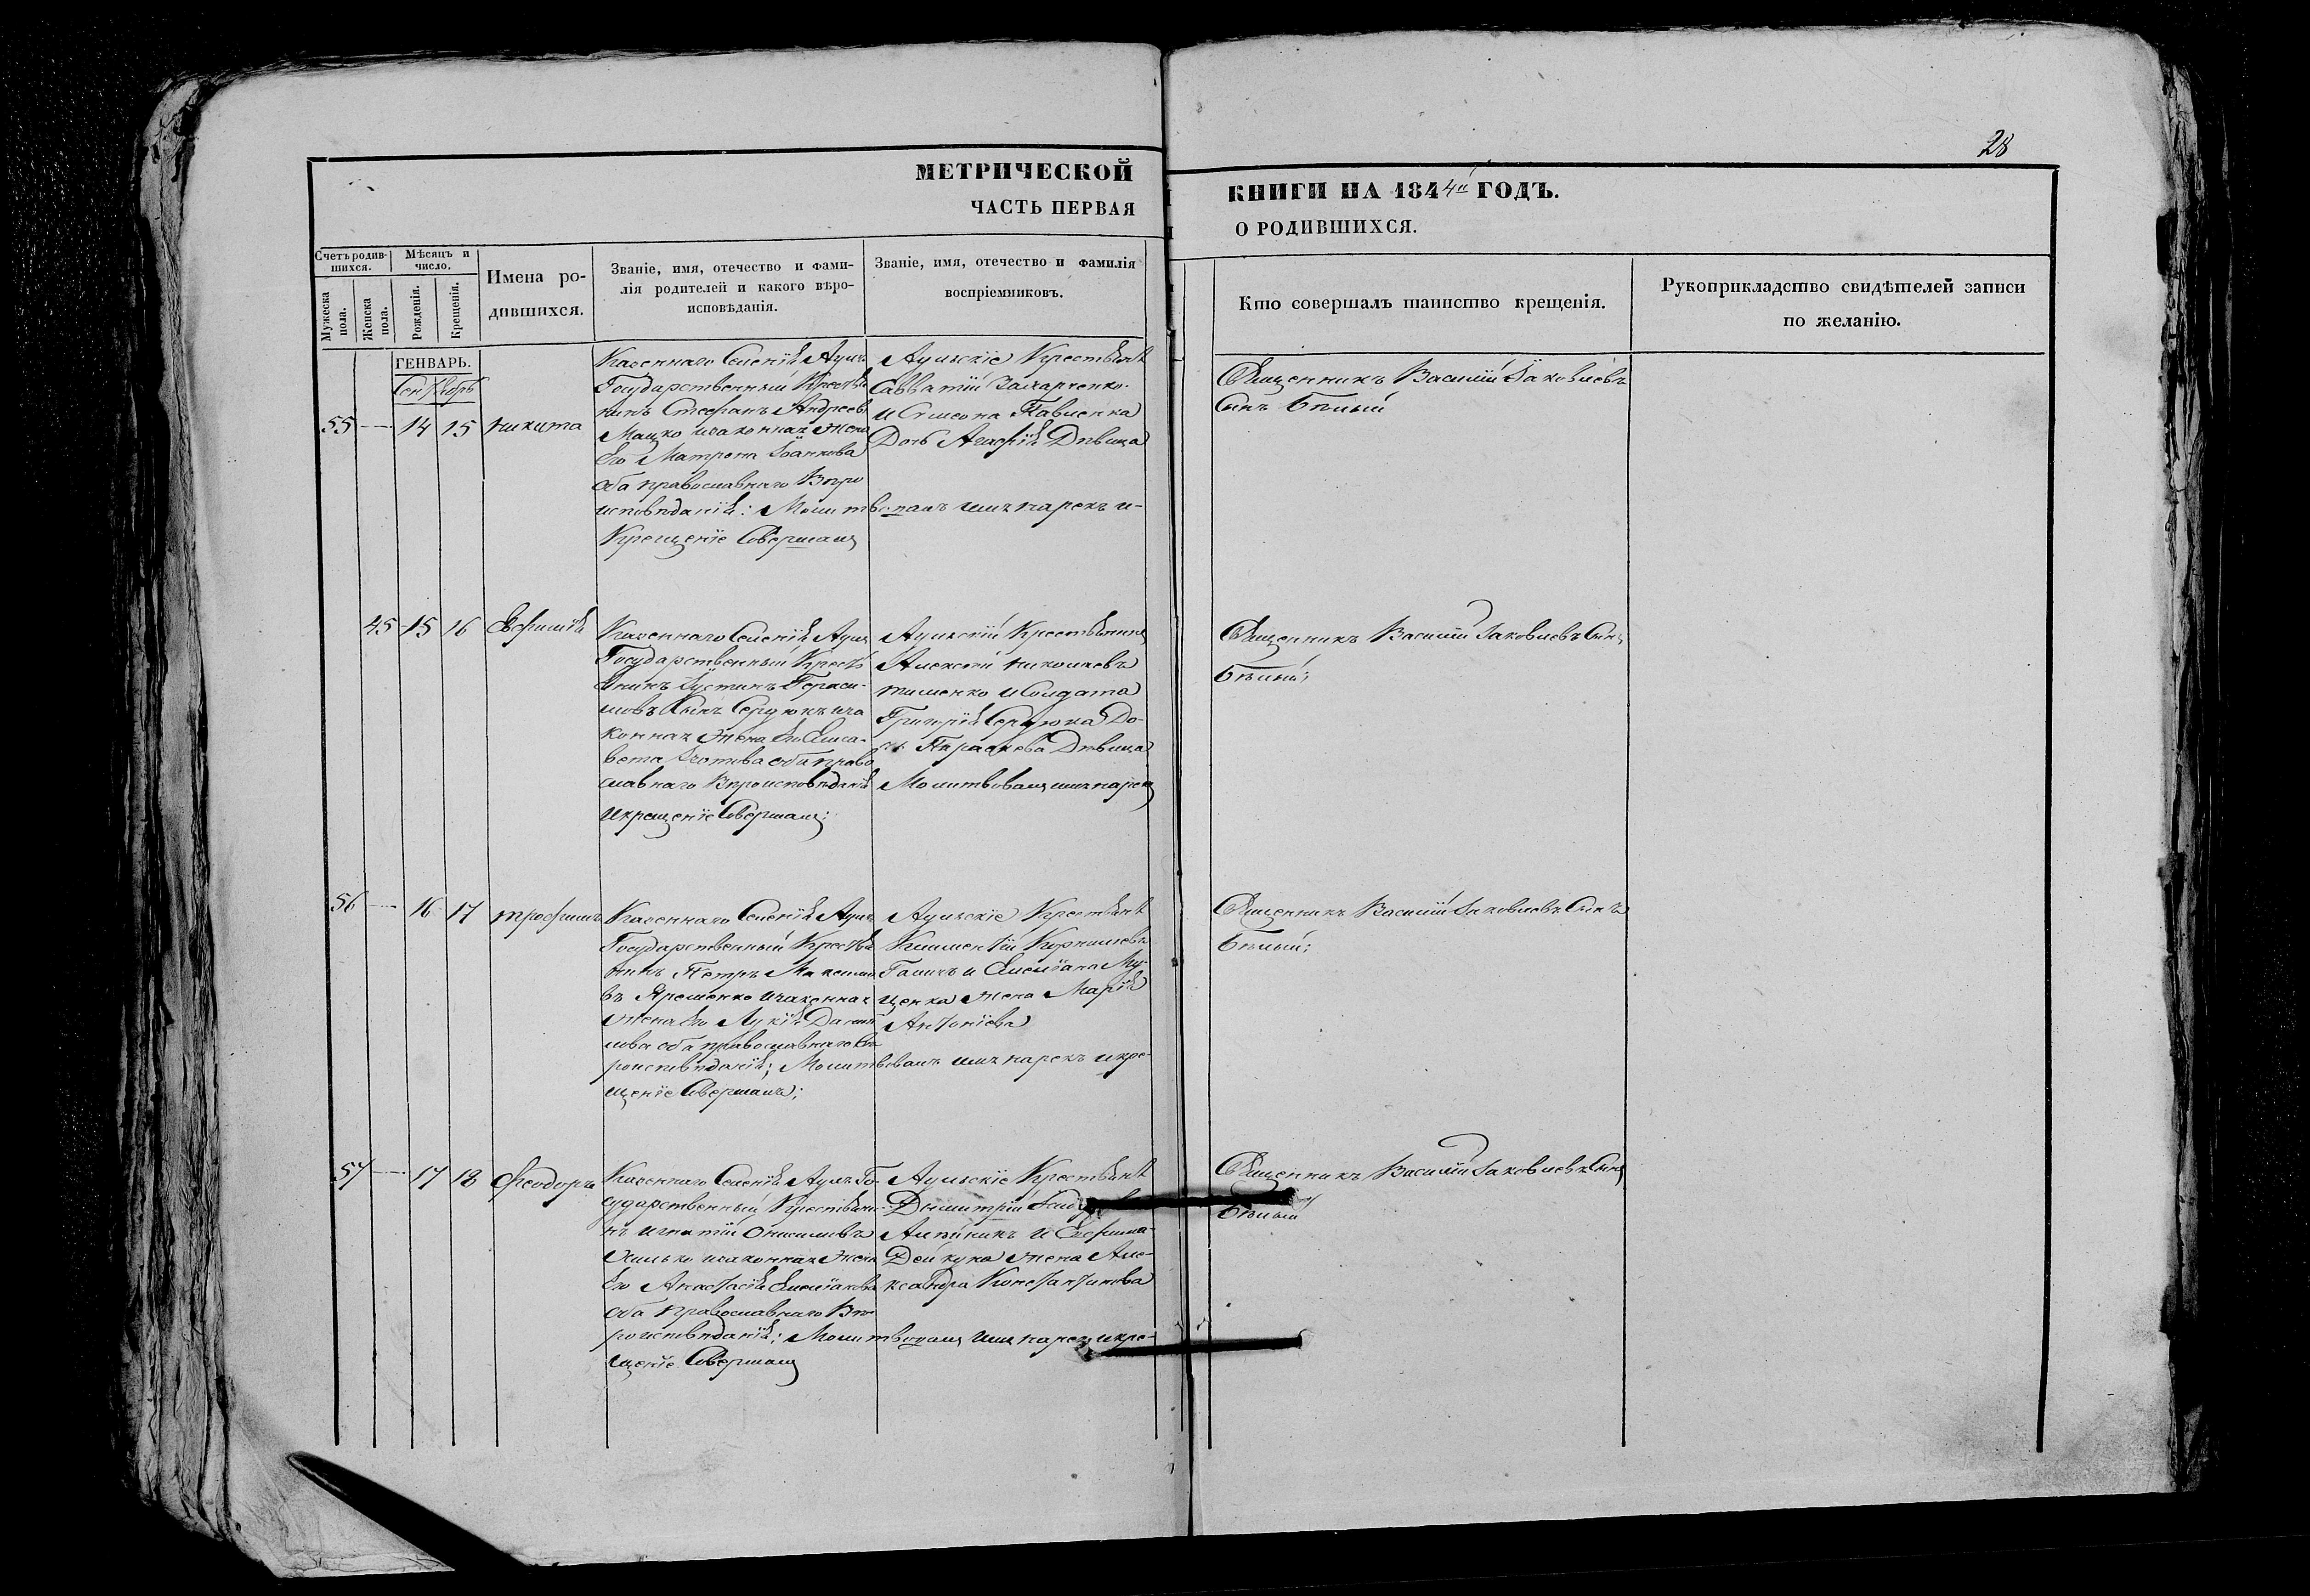 28
МЕТРИЧЕСКОЙ
ЧАСТЬ ПЕРВАЯ
КНИГИ НА 1844й ГОДЪ.
О РОДИВШИХСЯ.
Счетъ родившихся.
Мужеска пола.
Женска пола.
Мѣсяцъ и число.
Рожденія.
Крещенія.
Имена родившихся.
Званіе, имя, отечество и фамилія родителей и какого вѣроисповѣданія.
Званіе, имя, отечество и фамилія воспріемниковъ.
Кто совершалъ таинство крещенія.
Рукоприкладство свидѣтелей записи по желанію.
ГЕНВАРЬ.
Сентябрь
55 — 14 15 Никита
Казеннаго Селенія Аулъ
Государственный Крестья
нинъ Стефанъ Андреевъ
Мацко и законная жена
Его Матрона Іоаннова
оба православнаго Вѣро
исповѣданія: Молитвовалъ имя нарекъ и
Крещеніе Совершалъ
Аульскіе Крестьяне
Савватій Захарченко
и Симеона Павленка
Дочь Агафія Дѣвица
Священникъ Василій Іаковлевъ
Сынъ Бѣлый
45 15 16 Евфимія
Казеннаго Селенія Аулъ
Государственный Кресть
янинъ Іустинъ Гераси-
мовъ Сынъ Сердюкъ иза
конная жена Его Елиса-
вета оба право
славнаго Вѣроисповѣданія
Аульскій Крестьянинъ
Алексѣй Николаевъ
Тименко и Солдата
Григорія Сердюка До-
чь Дѣвица
Молитвовалъ имя нарекъ
И крещеніе Совершалъ;
Священникъ Василій Іаковлевъ Сынъ
Бѣлый;
56 — 16 17 Трофимъ
Казеннаго Селенія Аулъ
Государственный Крестья
нинъ Петръ Максимо
въ Яременко и законная
жена Его Лукія Данiи
лова оба православнаго Вѣ
роисповѣданія; Молитвовалъ имя нарекъ и кре-
щеніе Совершалъ;
Аульскіе Крестьяне
Климентій Корнилевъ
Галичъ и Емеліана Му-
ценка жена Марія
Антоніева
Священникъ Василій Іаковлевъ Сынъ
Бѣлый;
57 — 17 18 Феодоръ
Казеннаго Селенія Аулъ Го-
сударственный Крестьяни-
нъ Игнатій Онисимовъ
и законная жена
Его Анастасія Емеліанова
оба Православнаго Вѣ-
роисповѣданія; Молитвовалъ имя нарекъ и кре-
щеніе Совершалъ
Аульскіе Крестьяне
Димитрій
и Евфима
Дейкуна жена Але-
ксандра Константинова
Священникъ Василій Іаковлевъ Сынъ
Бѣлый